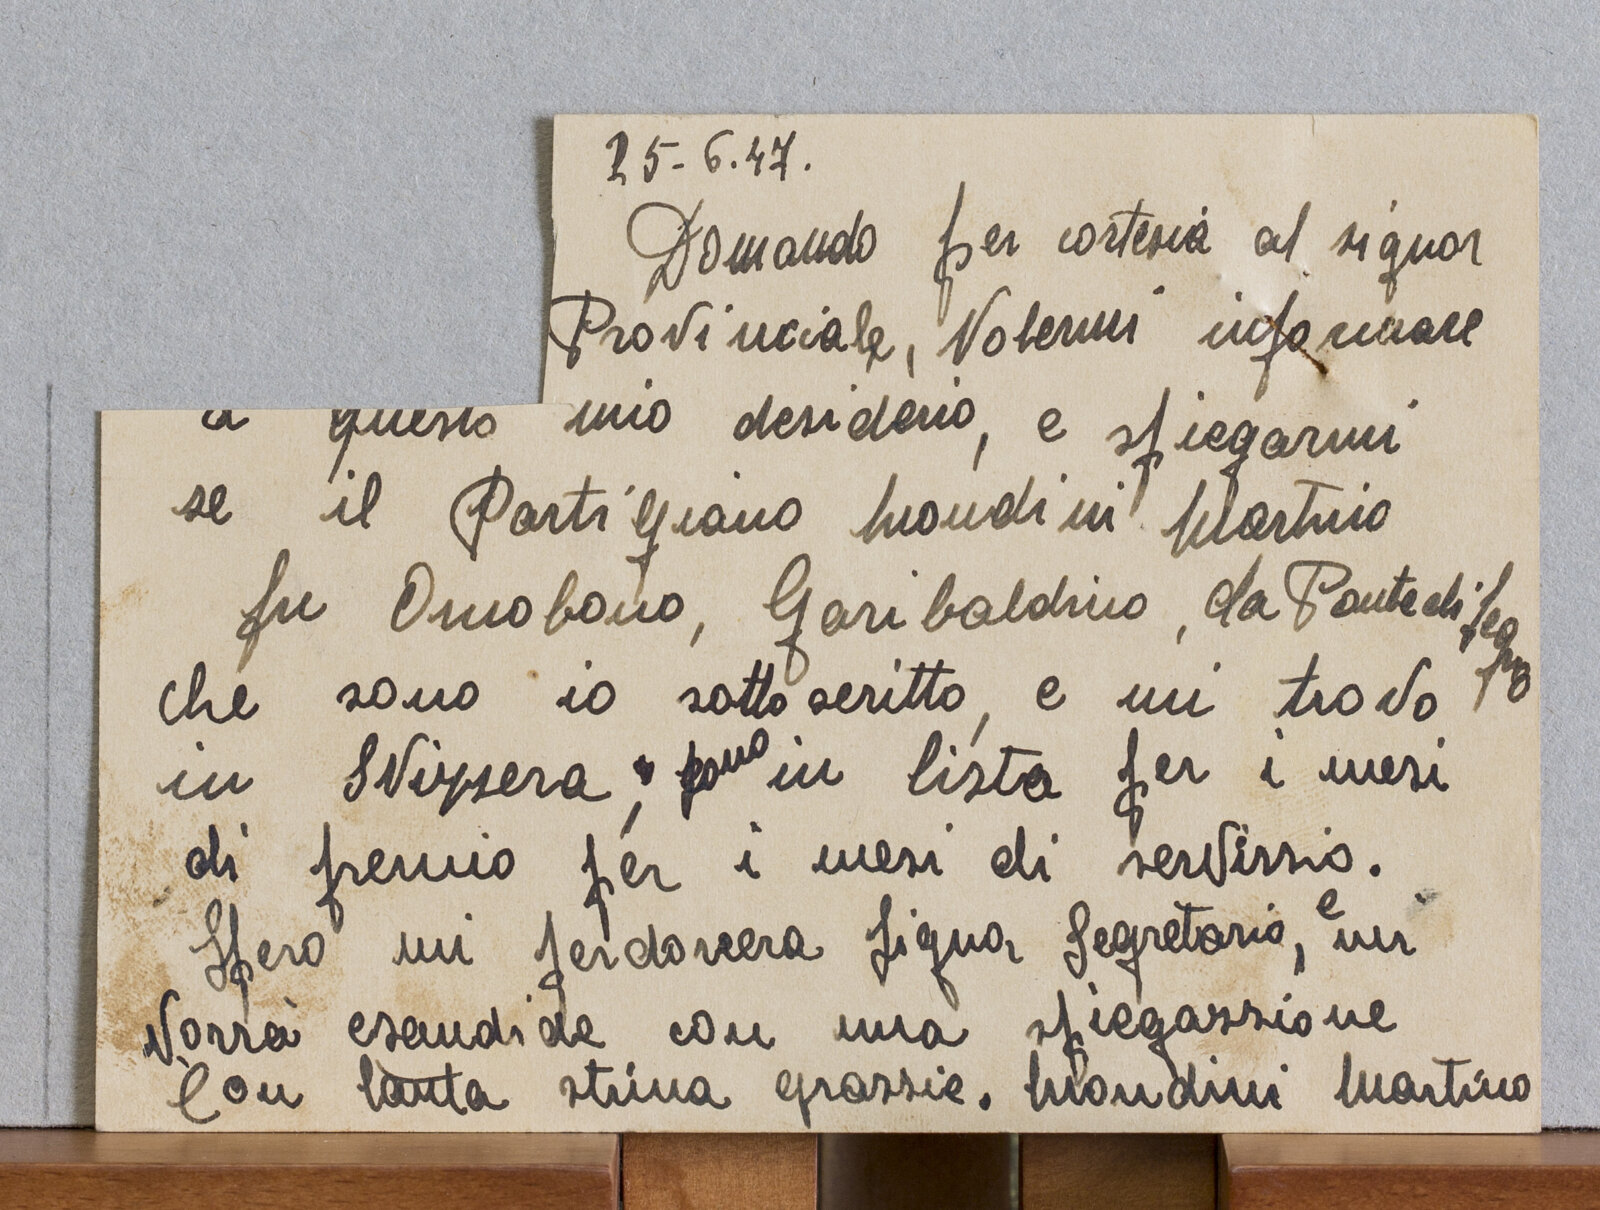 25-6.47.
Domando per cortesia al signor
Provinciale, Volermi informare
a questo mio desiderio, e spiegarmi
se il Partigiano Mondini Martino
fu Omobono, Garibaldino, da Ponte di Legno
che sono io sotto scritto, e mi trovo
in SVizsera, sono in lista per i mesi
di premio per i mesi di serVissio.
Spero mi perdonera Signor Segretario, e mi
Vorrà esaudide con una spiegassione
Con tanta stima grassie. Mondini Martino